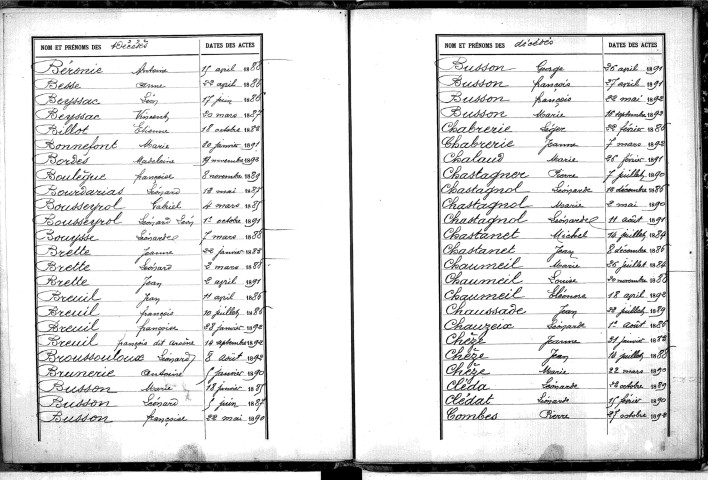 NOM ET PRÉNOMS DES Décédés DATES DES ACTES
Béronie Antoine 15 avril 1886
Besse Anne 22 avril 1886
Beyssac Léon 17 juin 1886
Beyssac Vincent 20 mars 1887
Billot Etienne 18 octobre 1886
Bonnefont Marie 20 janvier 1891
Bordes Madeleine novembre 1892
Boulègue françoise 8 novembre 1889
Bourdarias Léonard 12 mai 1887
Bousseyrol Gabriel 4 mars 1887
Bousseyrol Léonard Léon 1er octobre 1891
Bouysse Léonarde 7 mars 1888
Brette Jeanne 22 janvier 1886
Brette Léonard 2 mars 1888
Brette Jean 2 avril 1891
Breuil Jean 11 avril 1886
Breuil françois 10 juillet 1886
Breuil françoise 28 janvier 1892
Breuil françois dit Arsène 14 septembre 1892
Broussouloux Léonard 8 août 1892
Brunerie Antoine janvier 1890
Busson Marie 18 janvier 1887
Busson Léonard juin 1887
Busson françoise 22 mai 1890
NOM ET PRÉNOMS DES décédés DATES DES ACTES
Busson George 26 avril 1891
Busson françois 27 avril 1891
Busson françois 22 mai 1892
Busson Marie septembre 1892
Chabrerie Léger 22 février 1886
Chabrerie Jeanne 7 mars 1892
Chalaud Marie 26 février 1891
Chastagner Pierre 7 juillet 1890
Chastagnol Léonarde 10 décembre 1886
Chastagnol Marie 2 mai 1890
Chastagnol Léonarde 11 août 1891
Chastanet Michel 16 juillet 1884
Chastanet Jean 8 décembre 1886
Chaumeil Marie 26 juillet 1884
Chaumeil Louise 20 novembre 1888
Chaumeil Eléonore 18 avril 1892
Chaussade Jean 22 juillet 1889
Chauzeix Léonarde 1er août 1886
Chèze Jeanne 21 janvier 1886
Chèze Jean 16 juillet 1888
Chèze Marie 22 mars 1890
Cléda Léonarde 22 octobre 1889
Clédat Léonarde 15 février 1890
Combes Pierre 27 octobre 1892